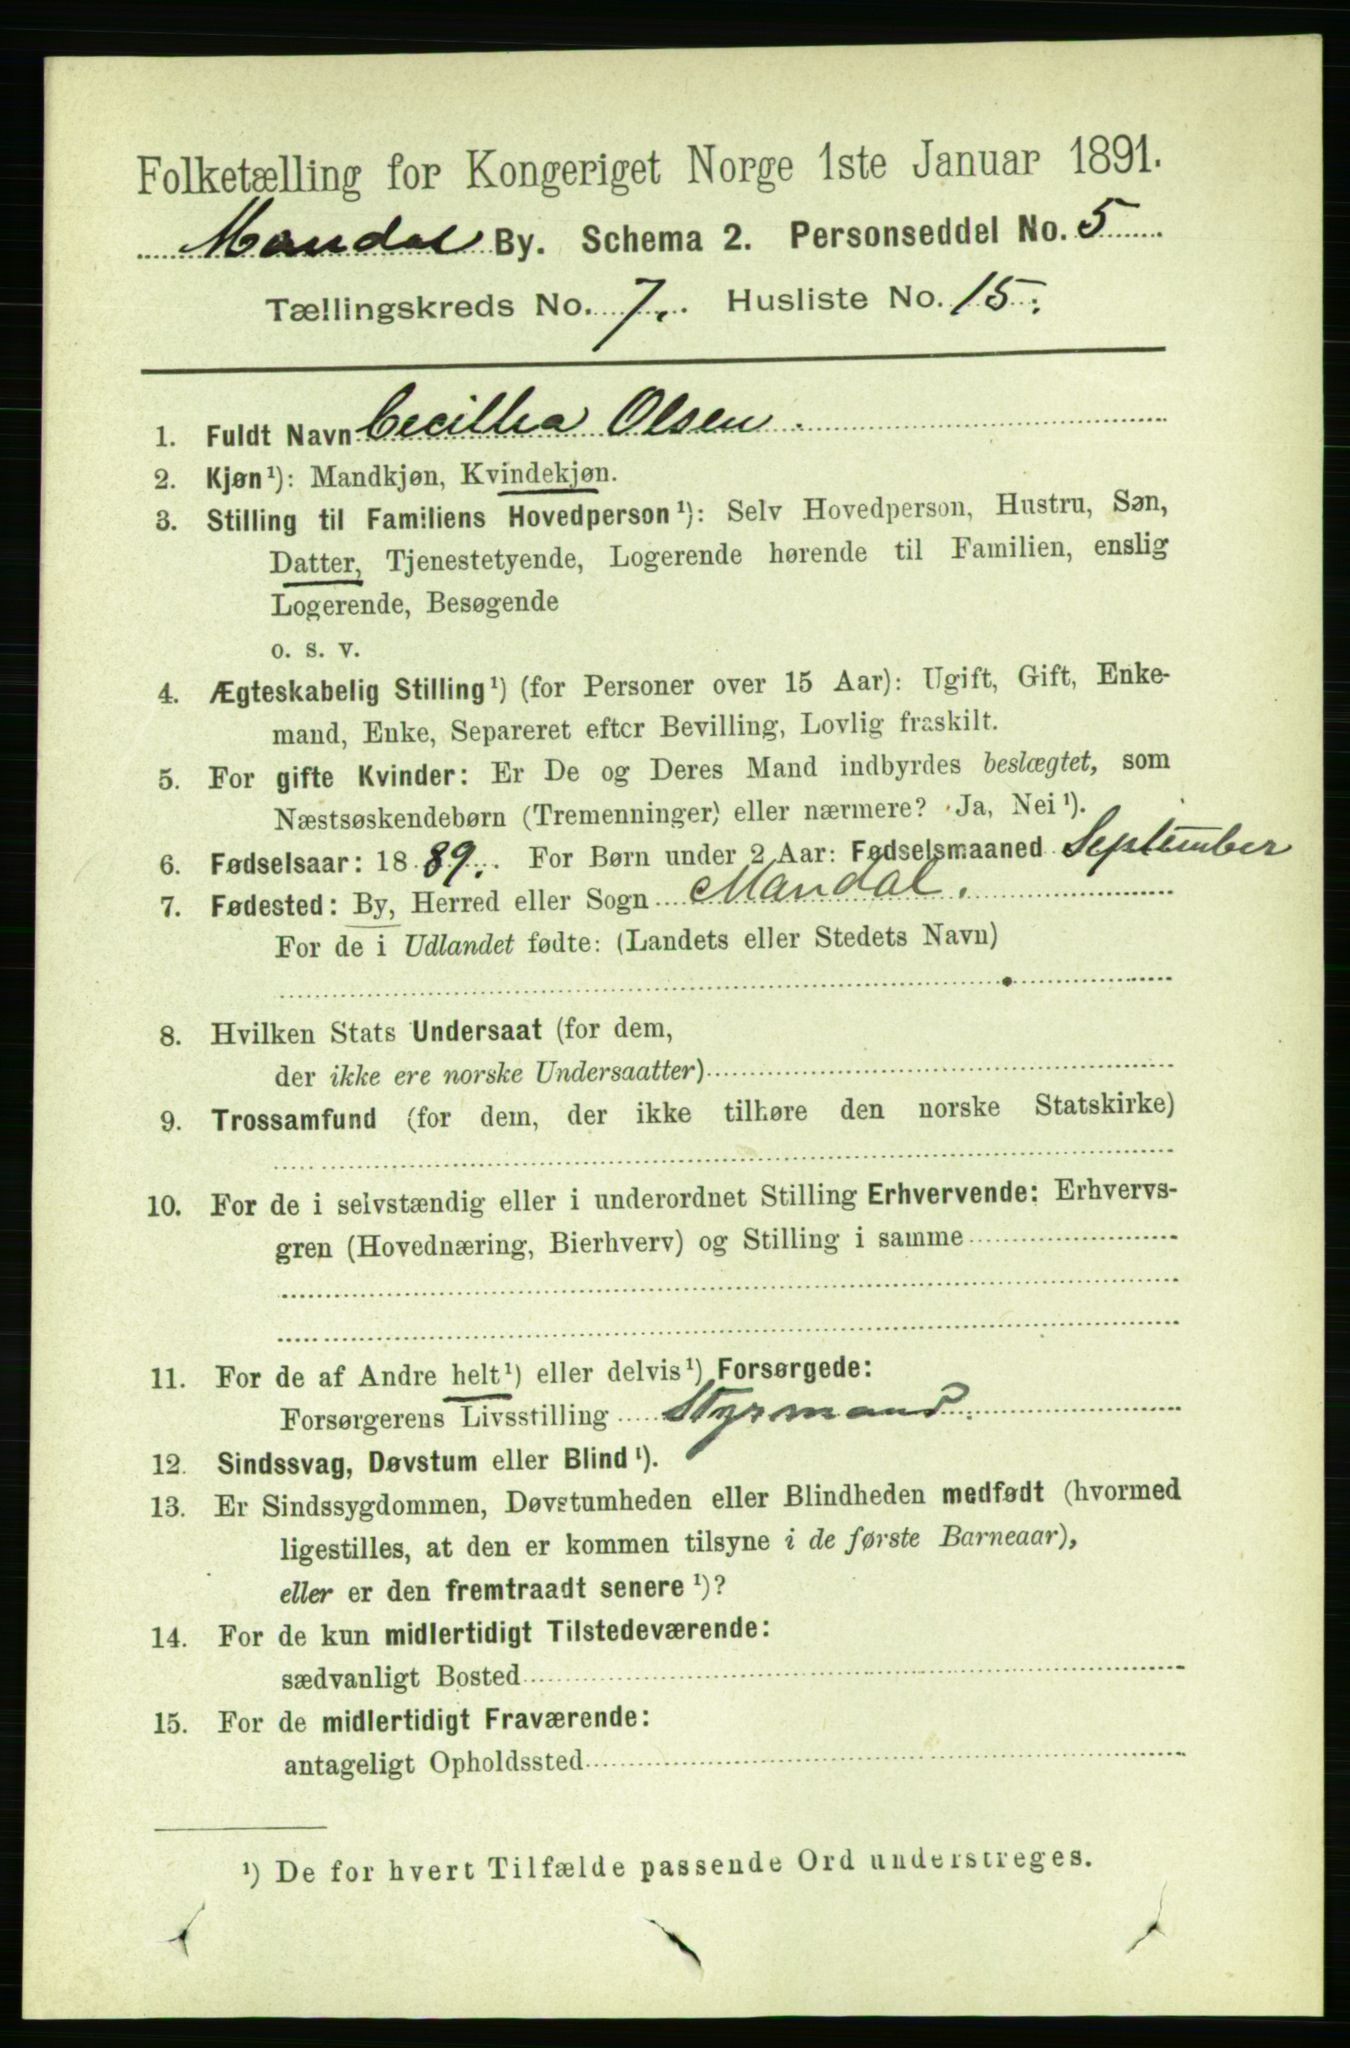 Folketælling for Kongeriget Norge 1ste Januar 1891.
Mandal By. Schema 2. Personseddel No. 5
Tællingskreds No. 7. Husliste No. 15.
1. Fuldt Navn Cecilha Olsen.
2. Kjøn¹): Mandkjøn, Kvindekjøn.
3. Stilling til Familiens Hovedperson¹): Selv Hovedperson, Hustru, Søn,
Datter, Tjenestetyende, Logerende hørende til Familien, enslig
Logerende, Besøgende
o. s. v.
4. Ægteskabelig Stilling¹) (for Personer over 15 Aar): Ugift, Gift, Enke-
mand, Enke, Separeret efter Bevilling, Lovlig fraskilt.
5. For gifte Kvinder: Er De og Deres Mand indbyrdes beslægtet, som
Næstsøskendebørn (Tremenninger) eller nærmere? Ja, Nei¹).
6. Fødselsaar: 1889. For Børn under 2 Aar: Fødselsmaaned September
7. Fødested: By, Herred eller Sogn Mandal.
For de i Udlandet fødte: (Landets eller Stedets Navn)
8. Hvilken Stats Undersaat (for dem,
der ikke ere norske Undersaatter)
9. Trossamfund (for dem, der ikke tilhøre den norske Statskirke)
10. For de i selvstændig eller i underordnet Stilling Erhvervende: Erhvervs-
gren (Hovednæring, Bierhverv) og Stilling i samme
11. For de af Andre helt¹) eller delvis¹) Forsørgede:
Forsørgerens Livsstilling Styrmand.
12. Sindssvag, Døvstum eller Blind¹).
13. Er Sindssygdommen, Døvstumheden eller Blindheden medfødt (hvormed
ligestilles, at den er kommen tilsyne i de første Barneaar),
eller er den fremtraadt senere¹)?
14. For de kun midlertidigt Tilstedeværende:
sædvanligt Bosted
15. For de midlertidigt Fraværende:
antageligt Opholdssted
¹) De for hvert Tilfælde passende Ord understreges.